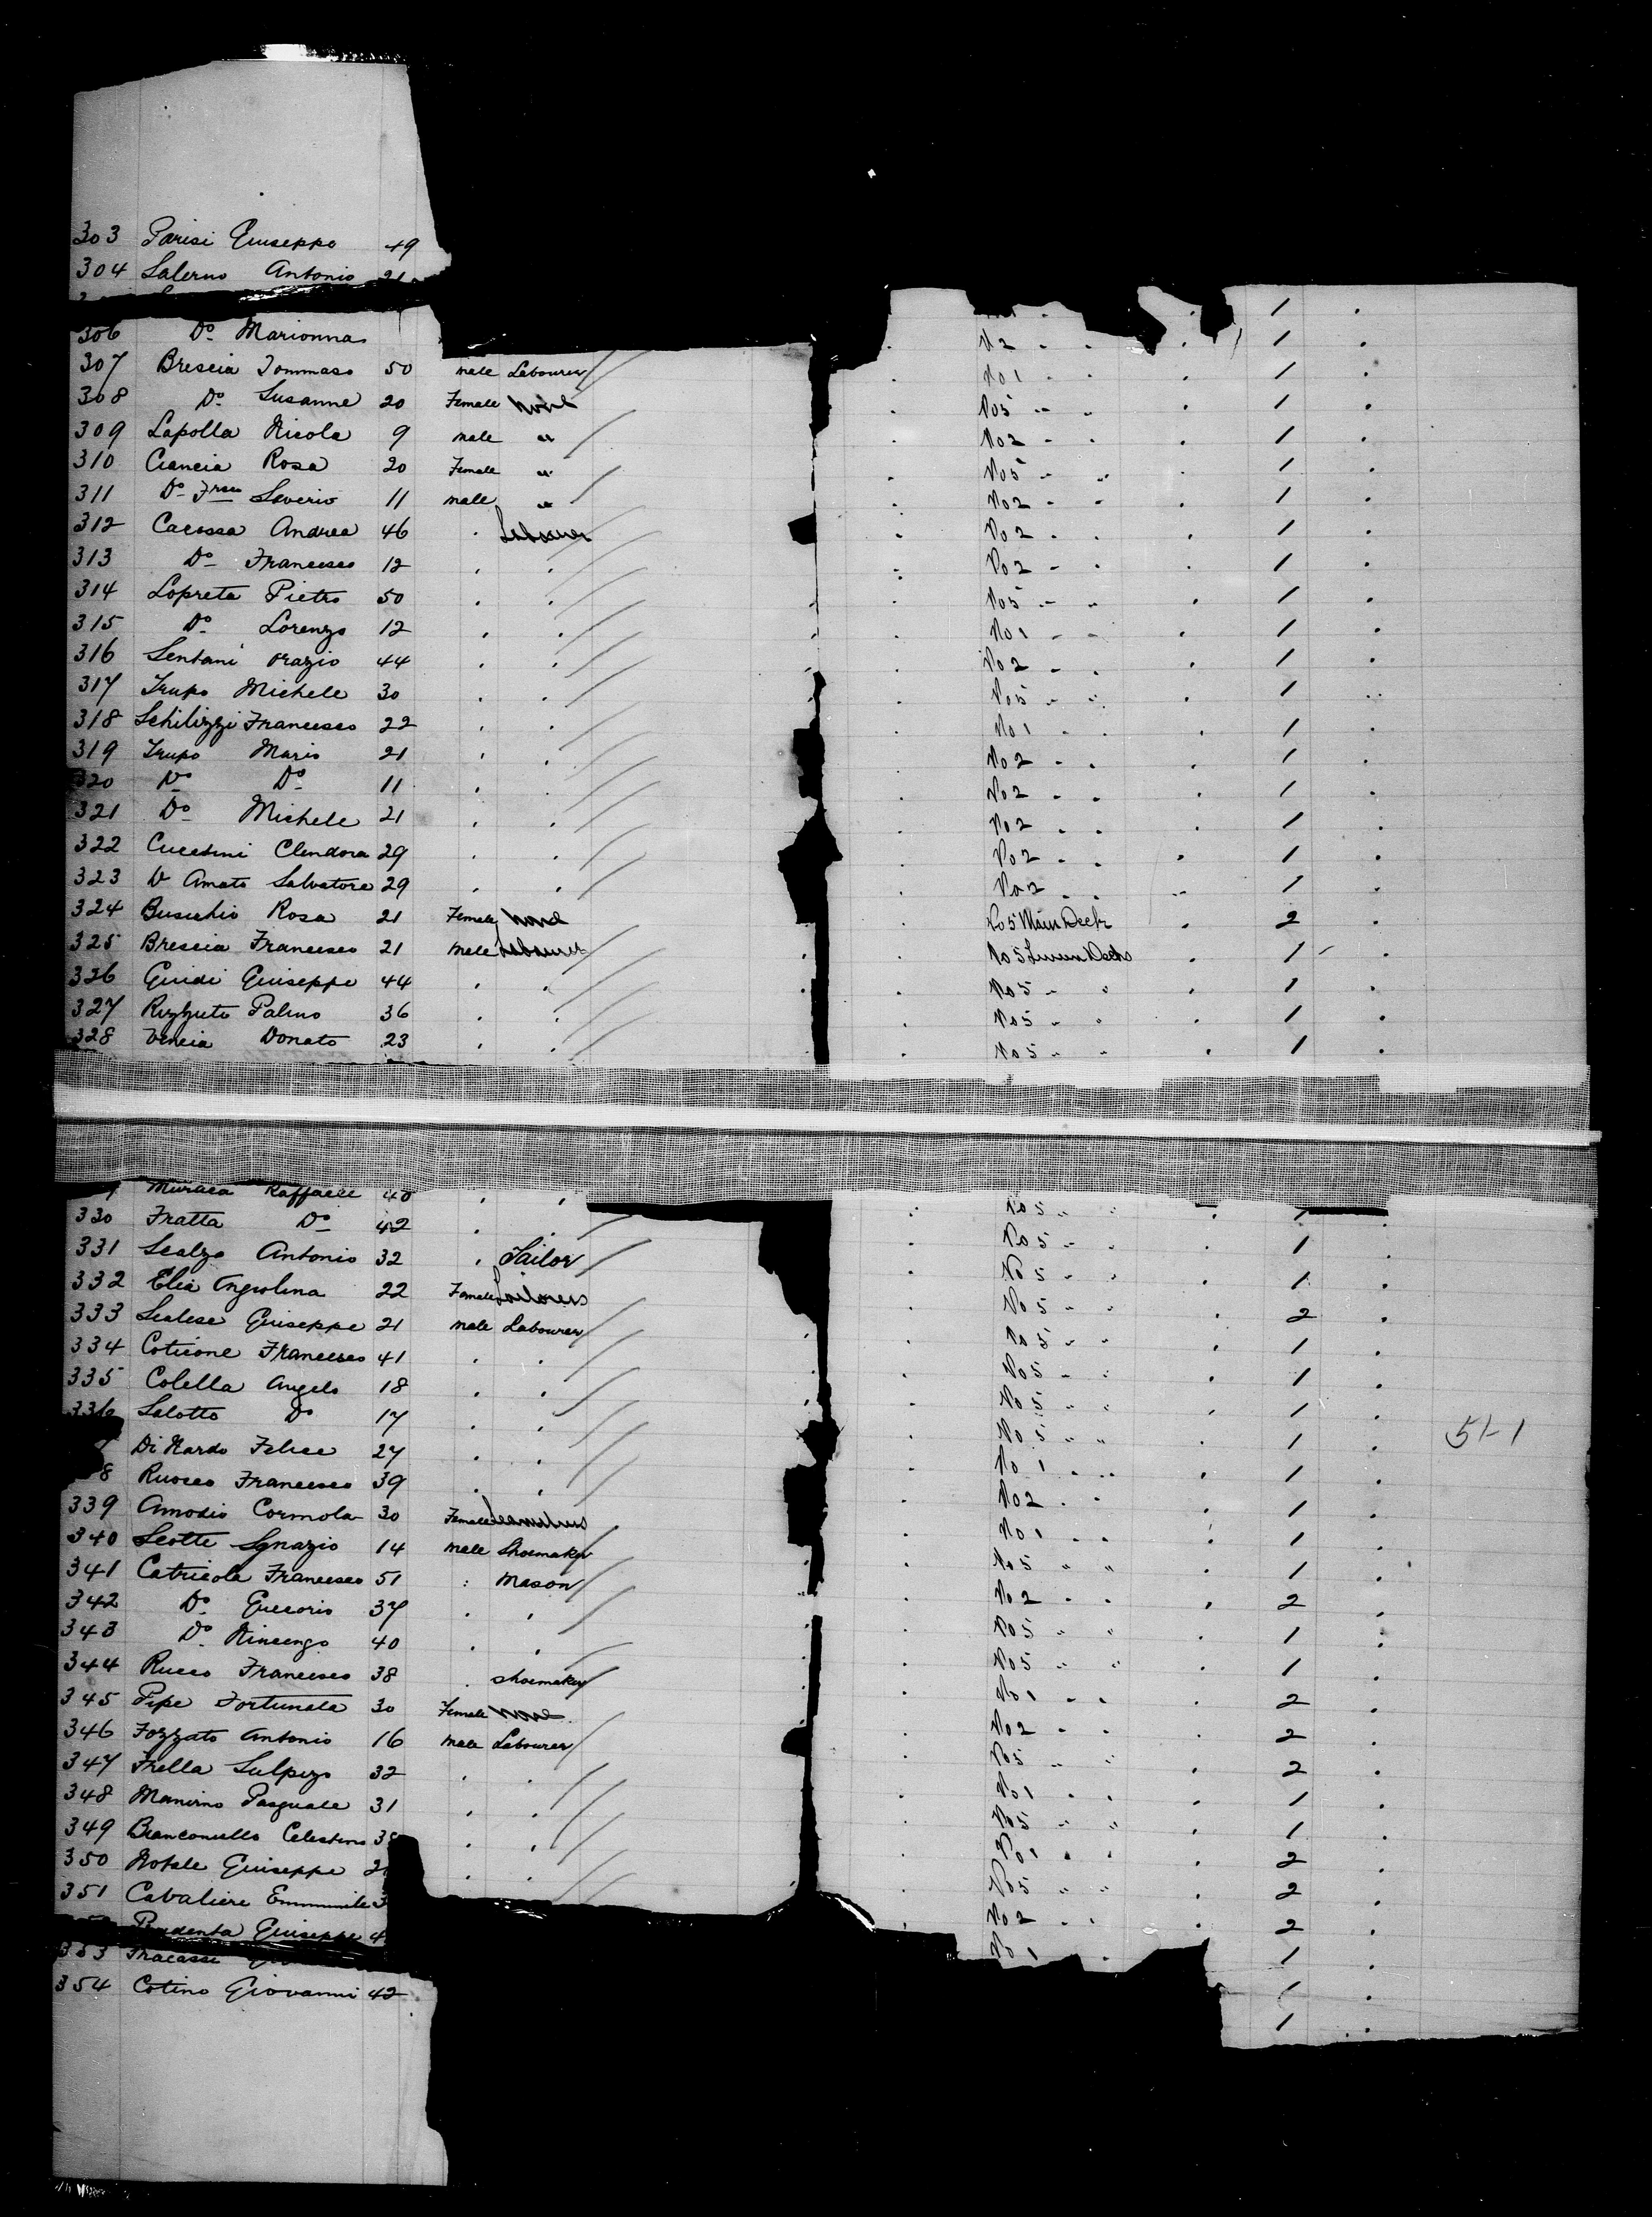 303 Parisi Giuseppe 49
304 Salerno Antonio 21
306 Do Marionna No 2 " " 1
307 Brescia Tommaso 50 male Labourer No 1 " " 1
308 Do Susanne 20 Female None No 5 " " 1
309 Lapolla Nicola 9 male " No 2 " " 1
310 Ciancia Rosa 20 Female " No 5 " " 1
311 Do Franco Saverio 11 male " No 2 " " 1
312 Carossa Andrea 46 " Labourer No 2 " " 1
313 Do Francesco 12 " " No 2 " " 1
314 Lopreta Pietro 50 " " No 5 " " 1
315 Do Lorenzo 12 " " No 1 " " 1
316 Sentani Orazio 44 " " No 2 " " 1
317 Trupo Michele 30 " " No 5 " " 1
318 Schilizzi Francesco 22 " " No 1 " " 1
319 Trupo Mario 21 " " No 2 " " 1
320 Do Do 11 " " No 2 " " 1
321 Do Michele 21 " " No 2 " " 1
322 Cucetini Clendora 29 " " No 2 " " 1
323 D Amato Salvatore 29 " " No 2 " " 1
324 Busichio Rosa 21 Female None No 5 Main Deck 2
325 Brescia Francesco 21 Male Labourer No 5 Decks 1
326 Guidi Giuseppe 44 " " No 5 " " 1
327 Rizzuto Palmo 36 " " No 5 " " 1
328 Vencia Donato 23 " " No 5 " " 1
Muraca Raffaele 40 " " No 5 " "
330 Fratta Do 42 " " No 5 " " 1
331 Scalzo Antonio 32 " Tailor No 5 " " 1
332 Elia Angiolina 22 Female No 5 " " 2
333 Scalese Giuseppe 21 male Labourer No 5 " " 1
334 Coticone Francesco 41 " " No 5 " " 1
335 Colella Angelo 18 " " No 5 " " 1
336 Salotto Do 17 " " No 5 " " 1 51-1
Di Nardo Felice 27 " " No 1 " " 1
8 Ruocco Francesco 39 " " No 2 " " 1
339 Amodio Cormola 30 Female No 1 " " 1
340 Scotte Ignazio 14 Male Shoemaker No 5 " " 1
341 Catricola Francesco 51 " Mason No 2 " " 2
342 Do Gregorio 37 " " No 5 " " 1
343 Do Vincenzo 40 " " No 5 " " 1
344 Rucco Francesco 38 " Shoemaker No 1 " " 2
345 Pipe Fortunata 30 Female None No 2 " " 2
346 Fozzato Antonio 16 male Labourer No 5 " " 2
347 Frella Sulpizo 32 " " No 1 " " 1
348 Manirno Pasquale 31 " " No 5 " " 1
349 Bianconiello Celestino 3 " " No 1 " " 2
350 Notale Giuseppe 2 " " No 5 " " 2
351 Cavaliere Emmanuele 3 No 2 " " 2
Prudenta Giuseppe 4 No 1 " 1
353 Fracassi 1
354 Cotino Giovanni 42 1